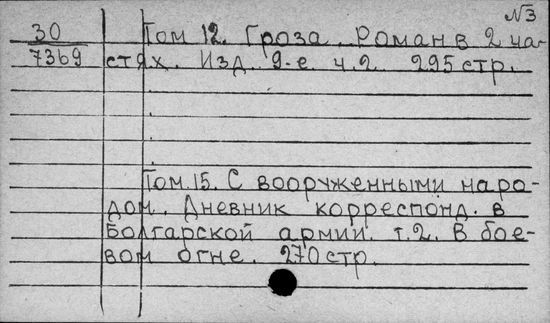 №3
30 Том 12. Гроза. Роман в 2 ча-
7369 стях. Изд. 9-е. ч.2. 295 стр.
Том 15. С вооруженными наро-
дом. Дневник корреспонд. в
Болгарской армии. т.2. В бое-
вом огне. 270 стр.